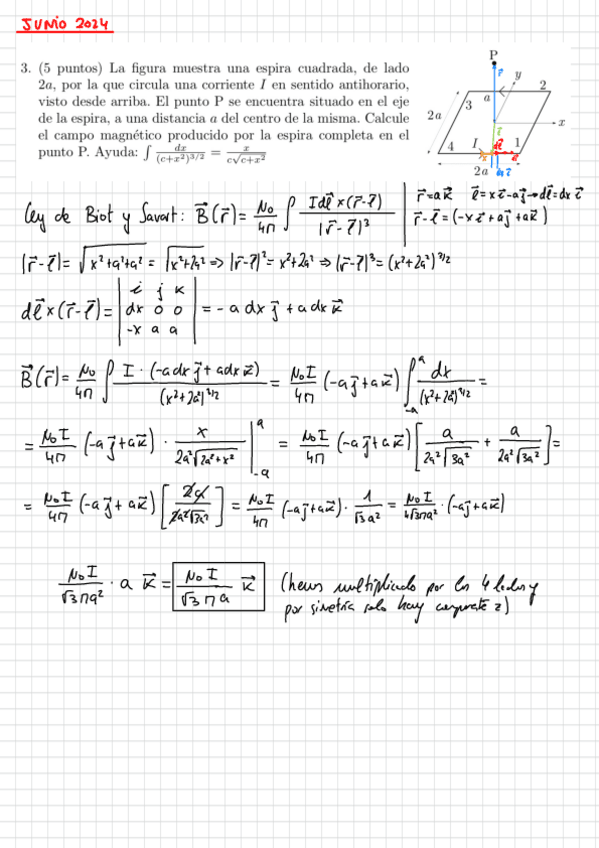 JUNIO 2024
3. (5 puntos) La figura muestra una espira cuadrada, de lado
2a, por la que circula una corriente I en sentido antihorario,
visto desde arriba. El punto P se encuentra situado en el eje
de la espira, a una distancia a del centro de la misma. Calcule
el campo magnético producido por la espira completa en el
punto P. Ayuda: ∫ dx/(c+x²)^{3/2} = x/(c√(c+x²))
P
y
2
3
a
2a
x
4
I
dl⃗
1
2a
Ley de Biot y Savart: B⃗(r⃗)= μ₀/4π ∫ Idl⃗×(r⃗-l⃗)/|r⃗-l⃗|³ | r⃗=ak⃗ l⃗=xi⃗-aj⃗→dl⃗=dx i⃗
r⃗-l⃗=(-xi⃗+aj⃗+ak⃗)
|r⃗-l⃗|=√(x²+a²+a²) = √(x²+2a²) ⇒ |r⃗-l⃗|²=x²+2a² ⇒ |r⃗-l⃗|³=(x²+2a²)^{3/2}
dl⃗×(r⃗-l⃗)= | i j k ; dx 0 0 ; -x a a | = -a dx j⃗ + a dx k⃗
B⃗(r⃗)= μ₀/4π ∫ I·(-adx j⃗+adx k⃗)/(x²+2a²)^{3/2} = μ₀I/4π (-aj⃗+ak⃗) ∫_{-a}^{a} dx/(x²+2a²)^{3/2} =
= μ₀I/4π (-aj⃗+ak⃗) · x/(2a²√(2a²+x²)) |_{-a}^{a} = μ₀I/4π (-aj⃗+ak⃗) [a/(2a²√(3a²)) + a/(2a²√(3a²))] =
= μ₀I/4π (-aj⃗+ak⃗) [2a/(2a²√(3a²))] = μ₀I/4π (-aj⃗+ak⃗) · 1/(√3a²) = μ₀I/(4√3πa²) · (-aj⃗+ak⃗)
μ₀I/(√3πa²) · a k⃗ = μ₀I/(√3πa) k⃗ (hemos multiplicado por los 4 lados y
por simetría solo hay componente z)